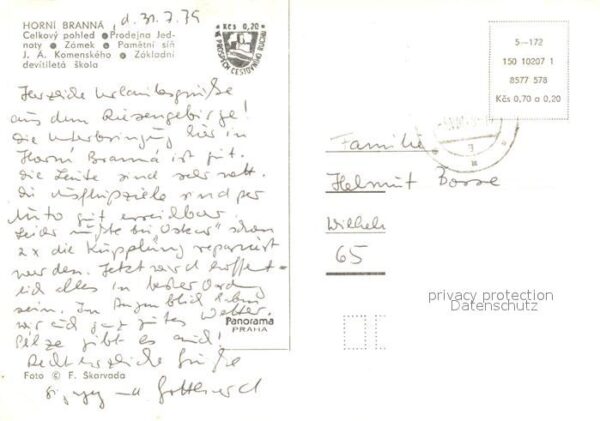 HORNÍ BRANNÁ, d. 31.7.79
Celkový pohled ● Prodejna Jed-
noty ● Zámek ● Pamětní síň
J. A. Komenského ● Základní
devítiletá škola
Kčs 0,20
VE PROSPĚCH CESTOVNÍHO RUCHU
Herzliche Urlaubsgrüße
aus dem Riesengebirge!
Die Unterbringung hier in
Horní Branná ist gut.
Die Leute sind sehr nett.
Die Ausflugsziele sind per
Auto gut erreichbar.
Leider mußte bei "Oskar" schon
2x die Kupplung repariert
werden. Jetzt wird hoffent-
lich alles in bester Ordng
sein. Im Augenblick haben
wir auch ganz gutes Wetter.
Pilze gibt es auch!
Recht herzliche Grüße
und
Panorama
PRAHA
Foto © F. Skarvada
5-172
150 10207 1
8577 578
Kčs 0,70 a 0,20
Familie
Helmut Bosse
Wilhelm
65
privacy protection
Datenschutz